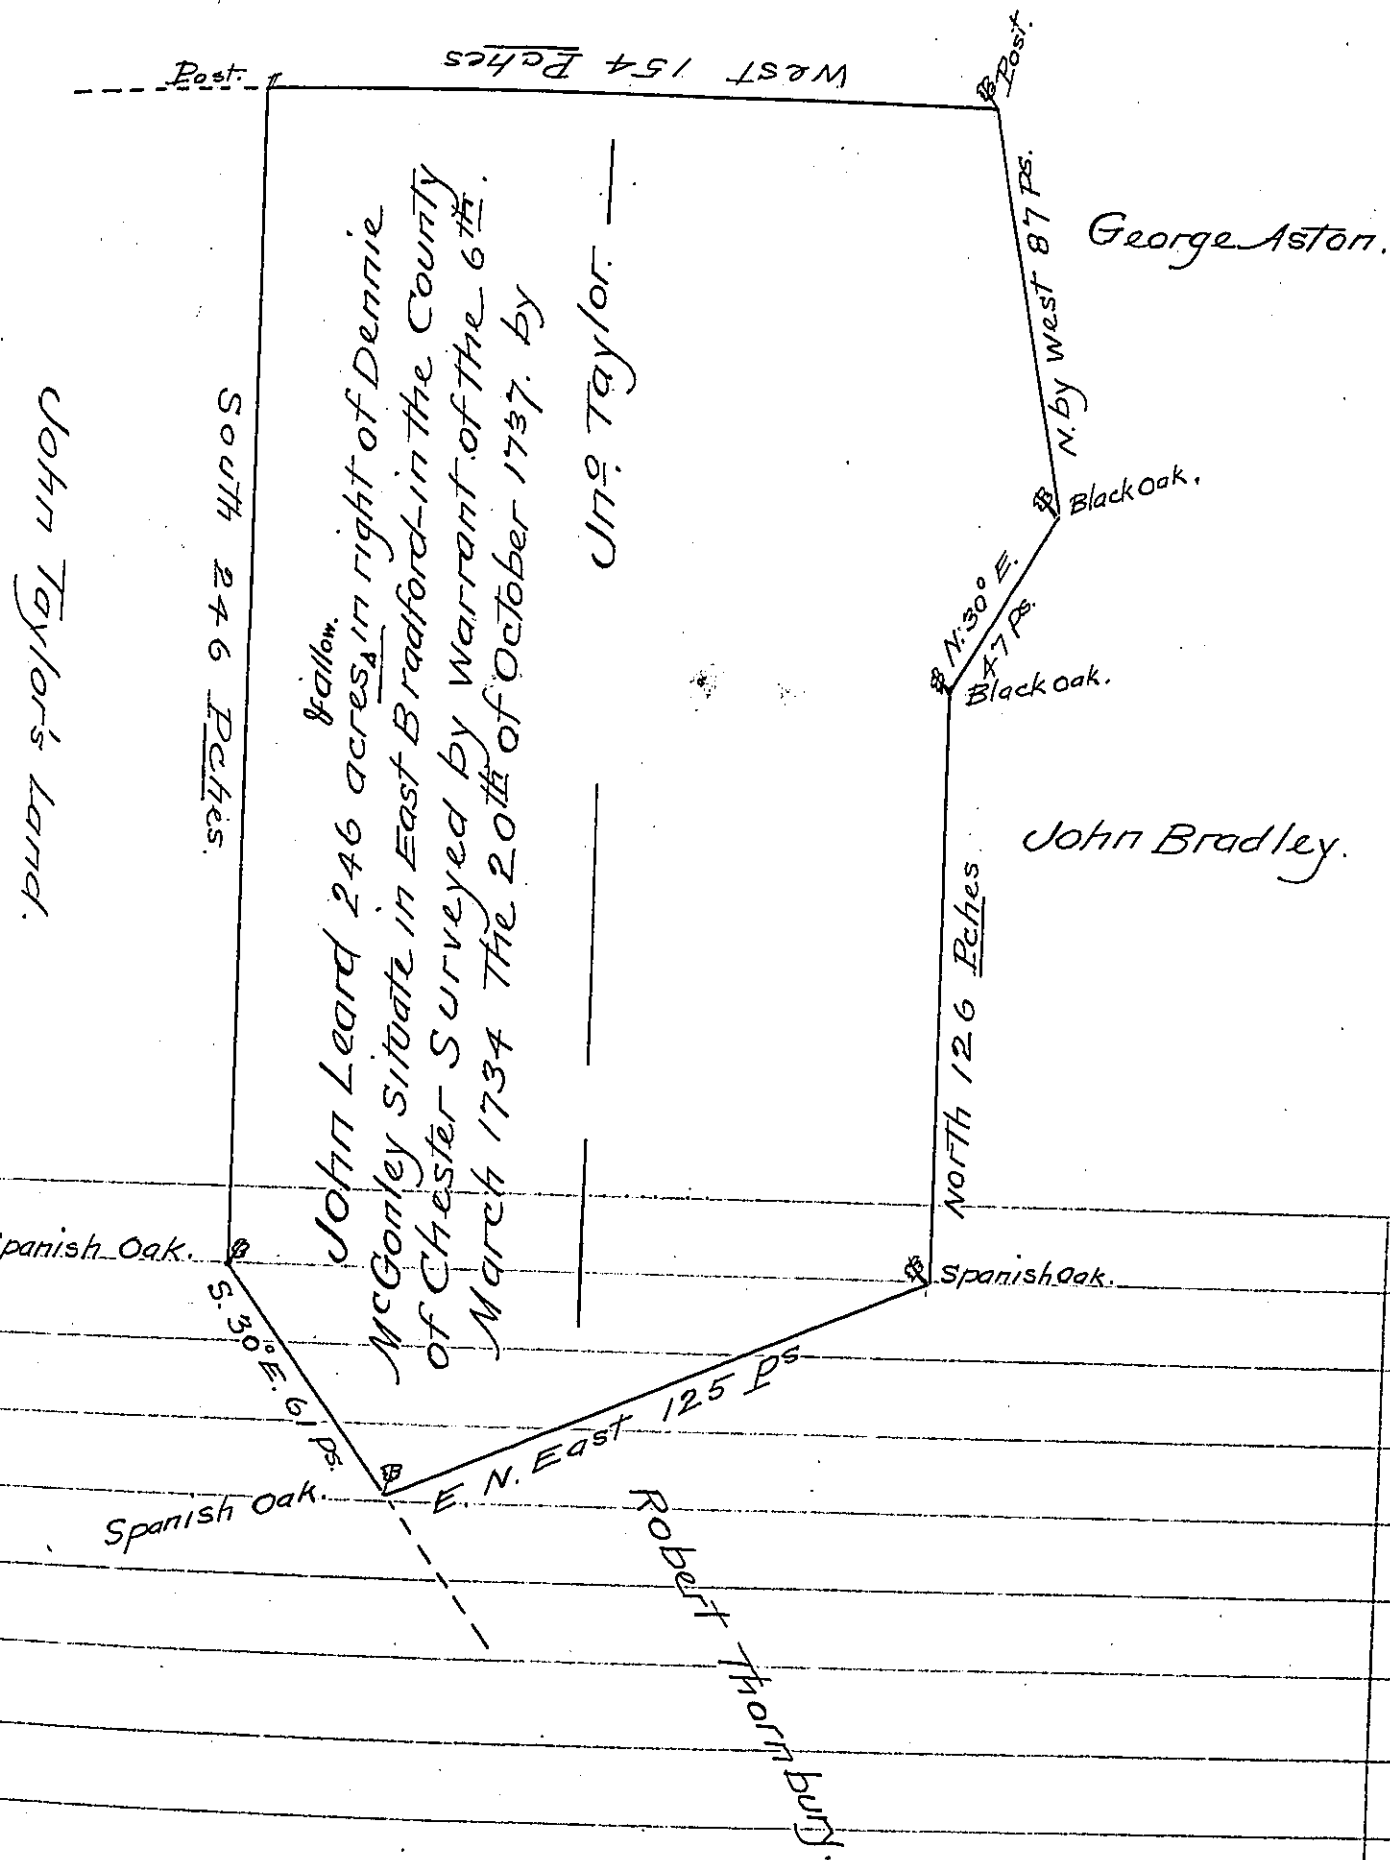 Post.
West 154 Pches
Post.
N. by west 87 Ps.
George Aston.
Black Oak.
N. 30° E.
47 Ps.
Black Oak.
John Bradley.
North 126 Pches
Spanish Oak.
E. N. East 125 Ps
Robert Thornbury.
Spanish Oak.
S. 30° E. 61 Ps.
panish Oak.
South 246 Pches.
John Taylor's Land.
& allow.
John Leard 246 acres in right of Dennie
McGonley Situate in East Bradford in the County
of Chester Surveyed by Warrant of the 6th.
March 1734 The 20th of October 1737. by
Jno. Taylor.